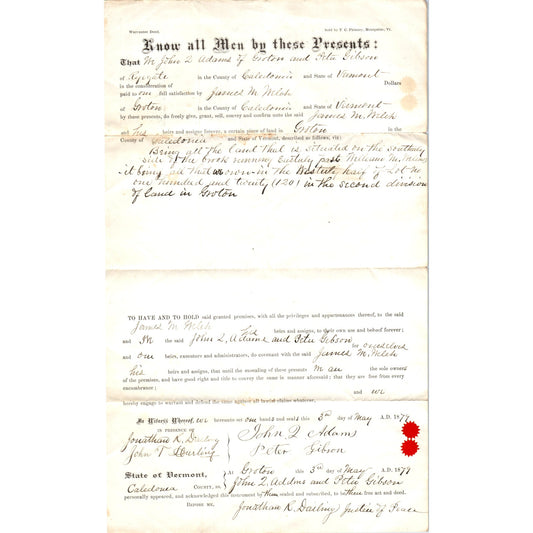 Warrantee Deed. Sold by T. C. Phinney, Montpelier, Vt.
Know all Men by these Presents:
That We John Q Adams of Groton and Peter Gibson
of Ryegate in the County of Caledonia and State of Vermont
in the consideration of Dollars
paid to our full satisfaction by James M. Welch
of Groton in the County of Caledonia and State of Vermont
by these presents, do freely give, grant, sell, convey and confirm unto the said James M. Welch
and his heirs and assigns forever, a certain piece of land in Groton in the
County of Caledonia and State of Vermont, described as follows, viz:
Being all the land that is situated on the southerly
side of the brook running easterly past William M.
it being all that we own in the Westerly half of Lot No
one hundred and twenty (120) in the second division
of land in Groton
TO HAVE AND TO HOLD said granted premises, with all the privileges and appurtenances thereof, to the said
James M Welch his heirs and assigns, to their own use and behoof forever;
and We the John Q. Adams and Peter Gibson for ourselves
and our heirs, executors and administrators, do covenant with the said James M. Welch
his heirs and assigns, that until the ensealing of these presents we are the sole owners
of the premises, and have good right and title to convey the same in manner aforesaid; that they are free from every
encumbrance; and we
hereby engage to warrant and defend the same against all lawful claims whatever,
In Witness Whereof, we hereunto set our hands and seals this 3rd day of May A.D. 1879
IN PRESENCE OF
Jonathan R. Darling John Q Adams
John T Darling Peter Gibson
State of Vermont, At Groton this 3rd day of May A.D. 1879
Caledonia COUNTY, ss. John Q. Adams and Peter Gibson
personally appeared, and acknowledged this instrument by them sealed and subscribed, to be their free act and deed.
BEFORE ME, Jonathan R. Darling Justice of Peace